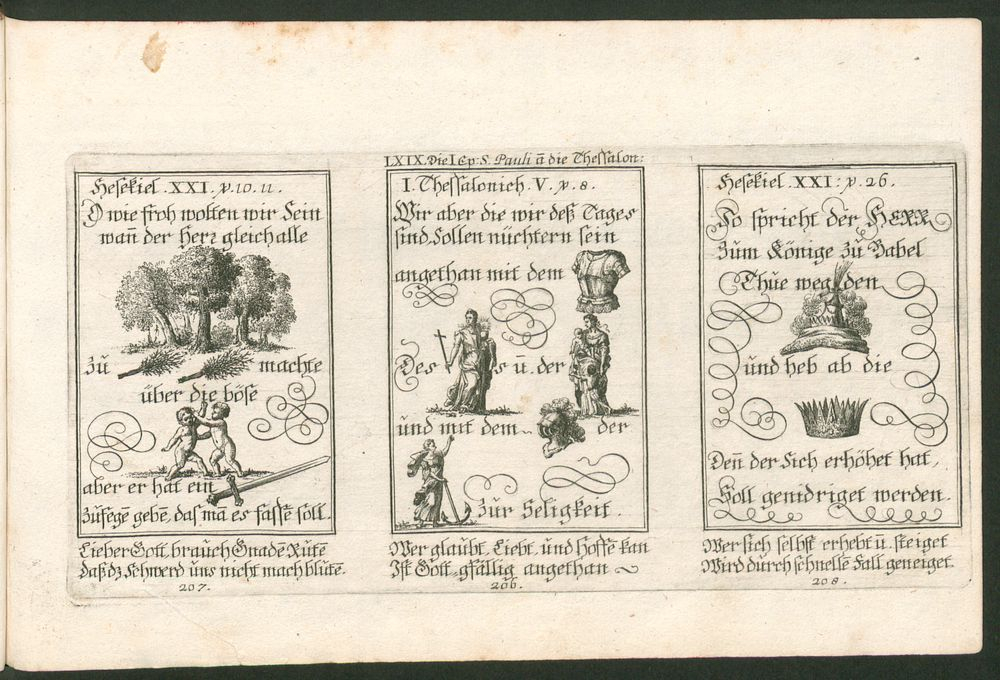 LXIX. Die I Ep: S. Pauli ā die Thessalon:
Hesekiel. XXI. v. 10. 11.
O wie froh wolten wir sein
wañ der Herr gleich alle
zů machte
über die böse
aber er hat ein
zůfegē gebē, das mā es fasse soll.
Lieber Gott, brauch Gnadē Růte
daß dz Schwerd ůns nicht mach blůte.
207.
I. Thessalonich. V. v. 8.
Wir aber die wir deß Tages
sind sollen nüchtern sein
angethan mit dem
Des s ů. der
ůnd mit dem der
zůr Seligkeit.
Wer glaůbt, Liebt, ůnd Hoffe kan
Ist Gott gfällig angethan
206.
Hesekiel. XXI: v. 26.
So spricht der HERR
zům Könige zů Babel
Thůe weg den
ůnd heb ab die
Deñ der sich erhöhet hat,
Soll genidriget werden.
Wer sich selbst erhebt ů. steiget
Wird důrch schnelle Fall geneiget.
208.